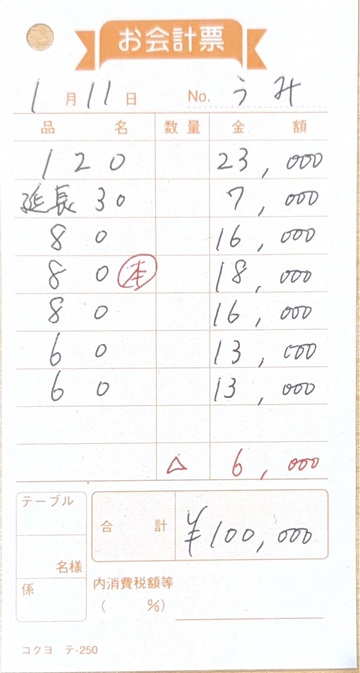 お会計票
1月11日 No. うみ
品名 数量 金額
120 23,000
延長30 7,000
80 16,000
80 本 18,000
80 16,000
60 13,000
60 13,000
△ 6,000
テーブル
合計 ¥100,000
名様
係
内消費税額等
( %)
コクヨ テ-250